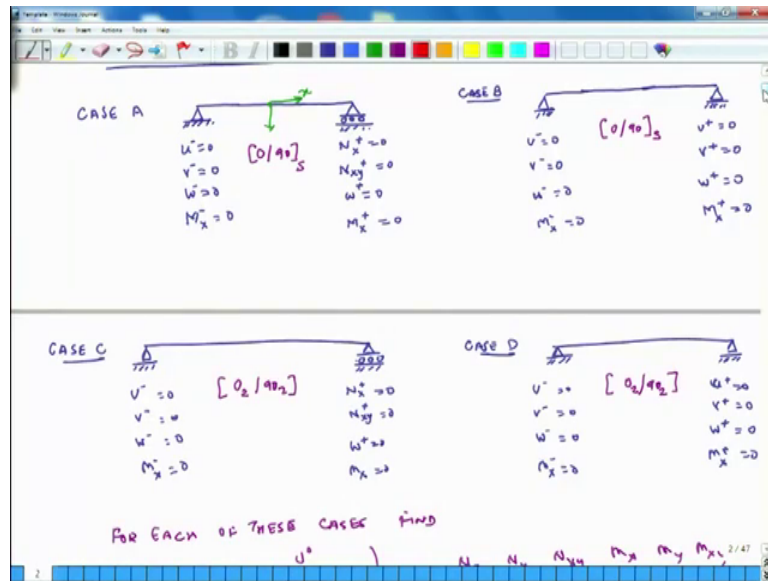 Template - Windows Journal
File Edit View Insert Actions Tools Help
B I
CASE A
x
[0/90]s
u⁻=0
v⁻=0
w⁻=0
Mx⁻=0
Nx⁺=0
Nxy⁺=0
w⁺=0
Mx⁺=0
CASE B
[0/90]s
u⁻=0
v⁻=0
w⁻=0
Mx⁻=0
u⁺=0
v⁺=0
w⁺=0
Mx⁺=0
CASE C
[0₂/90₂]
u⁻=0
v⁻=0
w⁻=0
Mx⁻=0
Nx⁺=0
Nxy⁺=0
w⁺=0
Mx=0
CASE D
[0₂/90₂]
u⁻=0
v⁻=0
w⁻=0
Mx⁻=0
u⁺=0
v⁺=0
w⁺=0
Mx⁺=0
FOR EACH OF THESE CASES FIND
u⁰
Nx Ny Nxy Mx My Mxy
2/47
2